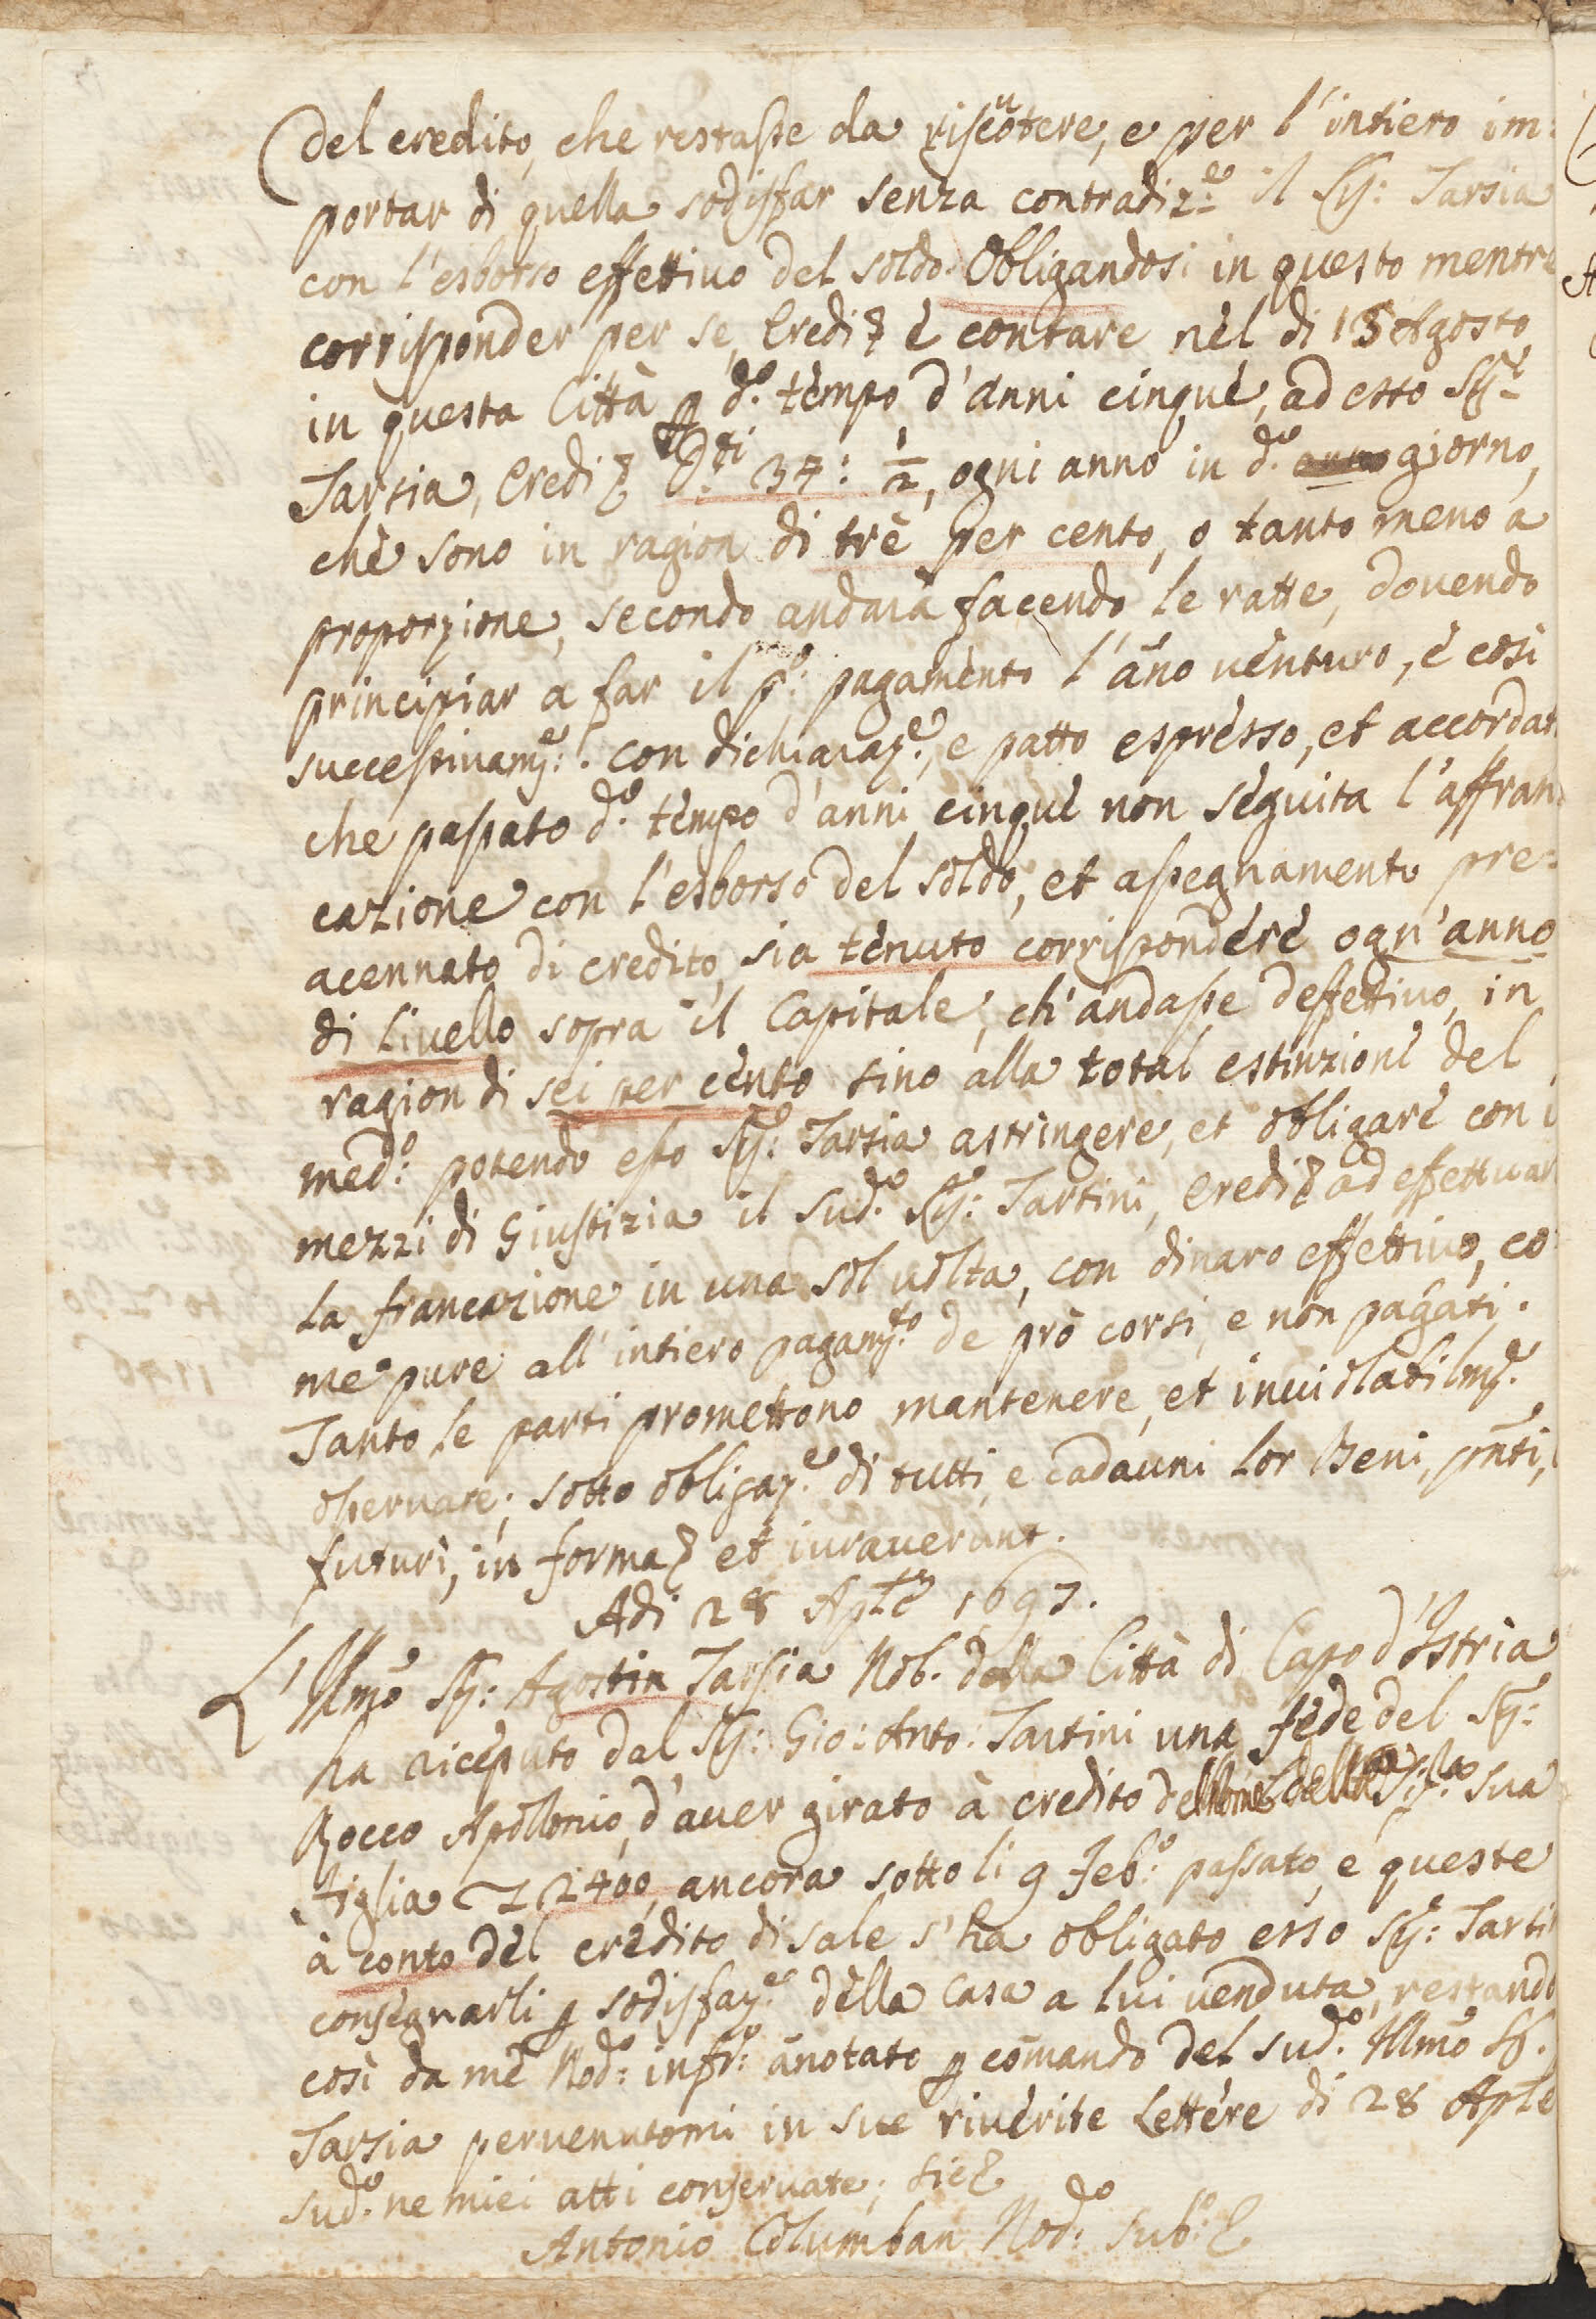 del credito, che restasse da riscuotere, e per l'intiero im:
portar di quella sodisfar senza contradiz.e il Sig.r Tarsia
con l'esborso effettivo del soldo. Obligandosi in questo mentre
corrisponder per se, Eredi & è contare nèl di 15 Agosto,
in questa Città p d.o tèmpo d'anni cinquè, ad esso Sig.r
Tarsia, Eredi & D.ti 37: 1/2, ogni anno in d.o anno giorno,
chè sono in ragion di trè per cento, o tanto meno a
proporzione, secondo andarà facendo le ratte, douendo
principiar a far il p.o pagamènto l'ãno uènturo, è così
successiuam.e: con dichiaraz.e, e patto esprèsso, et accordat
che passato d.o tèmpo d'anni cinquè non sèguita l'affran:
cazione con l'esborso del soldo, et assegnamento pre:
acennato di credito, sia tènuto corrispondèrè ogn'anno
di liuello sopra il Capitale, ch'andasse deffettiuo, in
ragion di sei per cènto sino alla total estinzionè del
med.o: potendo esso Sig.r Tarsia astringere, et obligarè con i
mezzi di Giustizia il sud.o Sig.r Tartini, eredi & ad effettuar
la francazione in una sol uolta, con dinaro effettiuo, co:
me pure all'intiero pagam.to de prò corsi, e non pagati.
Tanto le parti promettono mantenere, et inuiolabilm.e
osseruare; sotto obligaz.e di tutti, e cadauni lor Beni, pñti,
futuri; in forma & et iurauerunt.
Adi 28 Aple 1697.
L'Illmo Sig.r Agostin Tarsia Nob. della Città di Capo d'Istria
ha riceputo dal Sig.r Gio: Anto: Tartini una fède del Sig.r
Rocco Apollonio, d'auer girato à credito della Sig.ra sua
figlia L 2400, ancora sotto li 9 Feb.o passato, e queste
à conto dèl crèdito di sale s'ha obligato esso Sig.r Tarti
consègnarli p sodisfaz.e dèlla casa a lui uenduta, restando
così da mè Nod.o infr.o ãnotato p cõmando del sud.o Illmo S.r
Tarsia peruenutomi in sue riuèrite Lettère di 28 Aple
sud.o ne miei atti conseruate; sic &
Antonio Columban Nod.o sub.o &